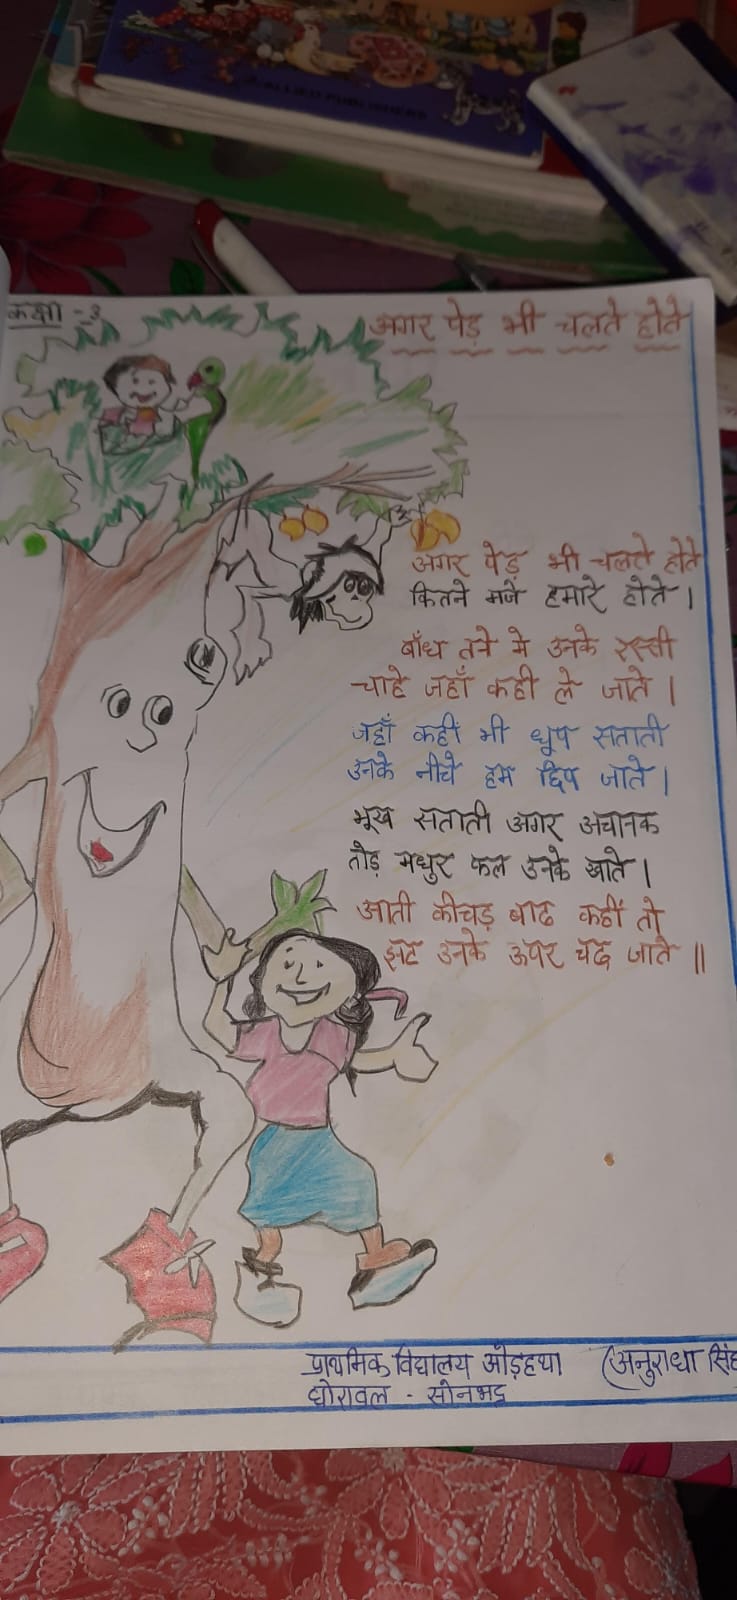 ALLIED PUBLISHERS
कक्षा - 3
अगर पेड़ भी चलते होते
अगर पेड़ भी चलते होते
कितने मजे हमारे होते ।
बाँध तने मे उनके रस्सी
चाहे जहाँ कही ले जाते ।
जहाँ कहीं भी धूप सताती
उनके नीचे हम छिप जाते ।
भूख सताती अगर अचानक
तोड़ मधुर फल उनके खाते ।
आती कीचड़ बाढ कहीं तो
झट उनके ऊपर चढ जाते ॥
प्राथमिक विद्यालय ओड़हथा (अनुराधा सिंह
घोरावल - सोनभद्र